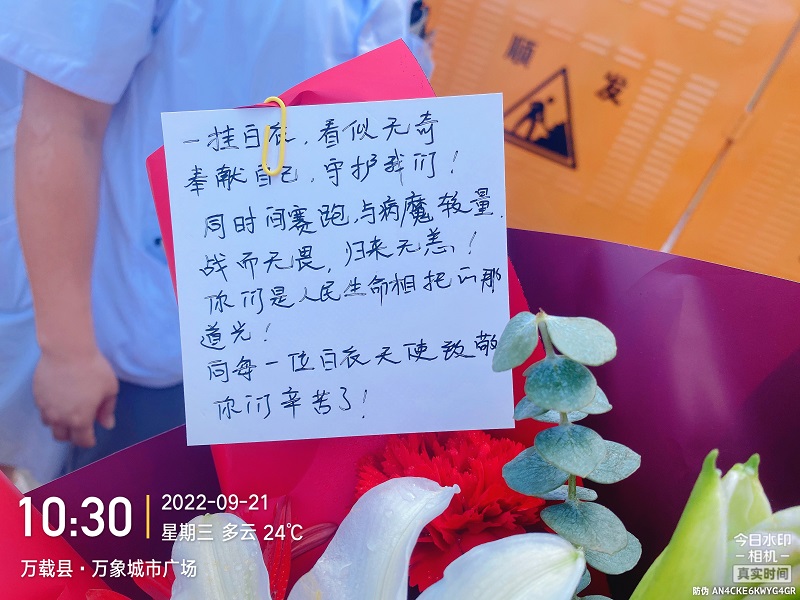 顺 发
一挂白衣，看似无奇
奉献自己，守护我们！
同时间赛跑，与病魔较量
战而无畏，归来无恙！
你们是人民生命相托的那
道光！
向每一位白衣天使致敬
你们辛苦了！
10:30
2022-09-21
星期三 多云 24℃
万载县·万象城市广场
今日水印
-相机-
真实时间
防伪 AN4CKE6KWYG4GR